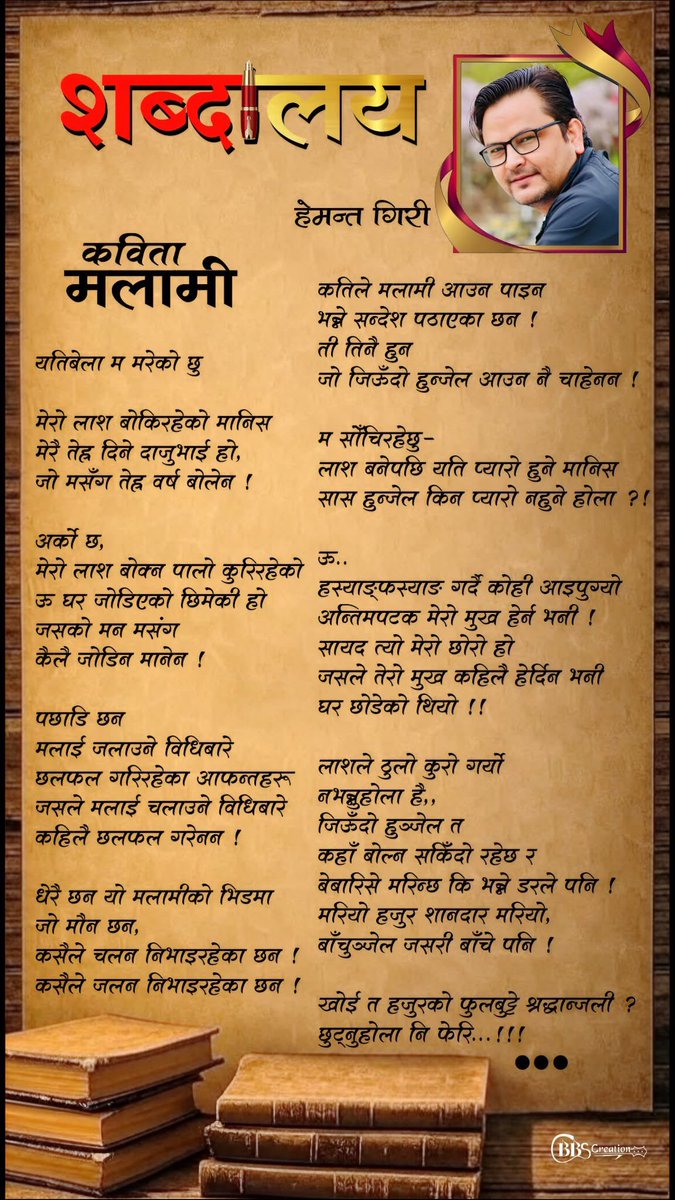 शब्दालय
हेमन्त गिरी
कविता
मलामी
यतिबेला म मरेको छु
मेरो लाश बोकिरहेको मानिस
मेरै तेह्र दिने दाजुभाई हो,
जो मसँग तेह्र वर्ष बोलेन !
अर्को छ,
मेरो लाश बोक्न पालो कुरिरहेको
ऊ घर जोडिएको छिमेकी हो
जसको मन मसंग
कैलै जोडिन मानेन !
पछाडि छन
मलाई जलाउने विधिबारे
छलफल गरिरहेका आफन्तहरू
जसले मलाई चलाउने विधिबारे
कहिलै छलफल गरेनन !
धेरै छन यो मलामीको भिडमा
जो मौन छन,
कसैले चलन निभाइरहेका छन !
कसैले जलन निभाइरहेका छन !
कतिले मलामी आउन पाइन
भन्ने सन्देश पठाएका छन !
ती तिनै हुन
जो जिऊँदो हुन्जेल आउन नै चाहेनन !
म सोँचिरहेछु-
लाश बनेपछि यति प्यारो हुने मानिस
सास हुन्जेल किन प्यारो नहुने होला ?!
ऊ..
हस्याङ्फस्याङ गर्दै कोही आइपुग्यो
अन्तिमपटक मेरो मुख हेर्न भनी !
सायद त्यो मेरो छोरो हो
जसले तेरो मुख कहिलै हेर्दिन भनी
घर छोडेको थियो !!
लाशले ठुलो कुरो गर्यो
नभन्नुहोला है,,
जिऊँदो हुञ्जेल त
कहाँ बोल्न सकिँदो रहेछ र
बेबारिसे मरिन्छ कि भन्ने डरले पनि !
मरियो हजुर शानदार मरियो,
बाँचुञ्जेल जसरी बाँचे पनि !
खोई त हजुरको फुलबुट्टे श्रद्धान्जली ?
छुट्नुहोला नि फेरि...!!!
BBS Creation